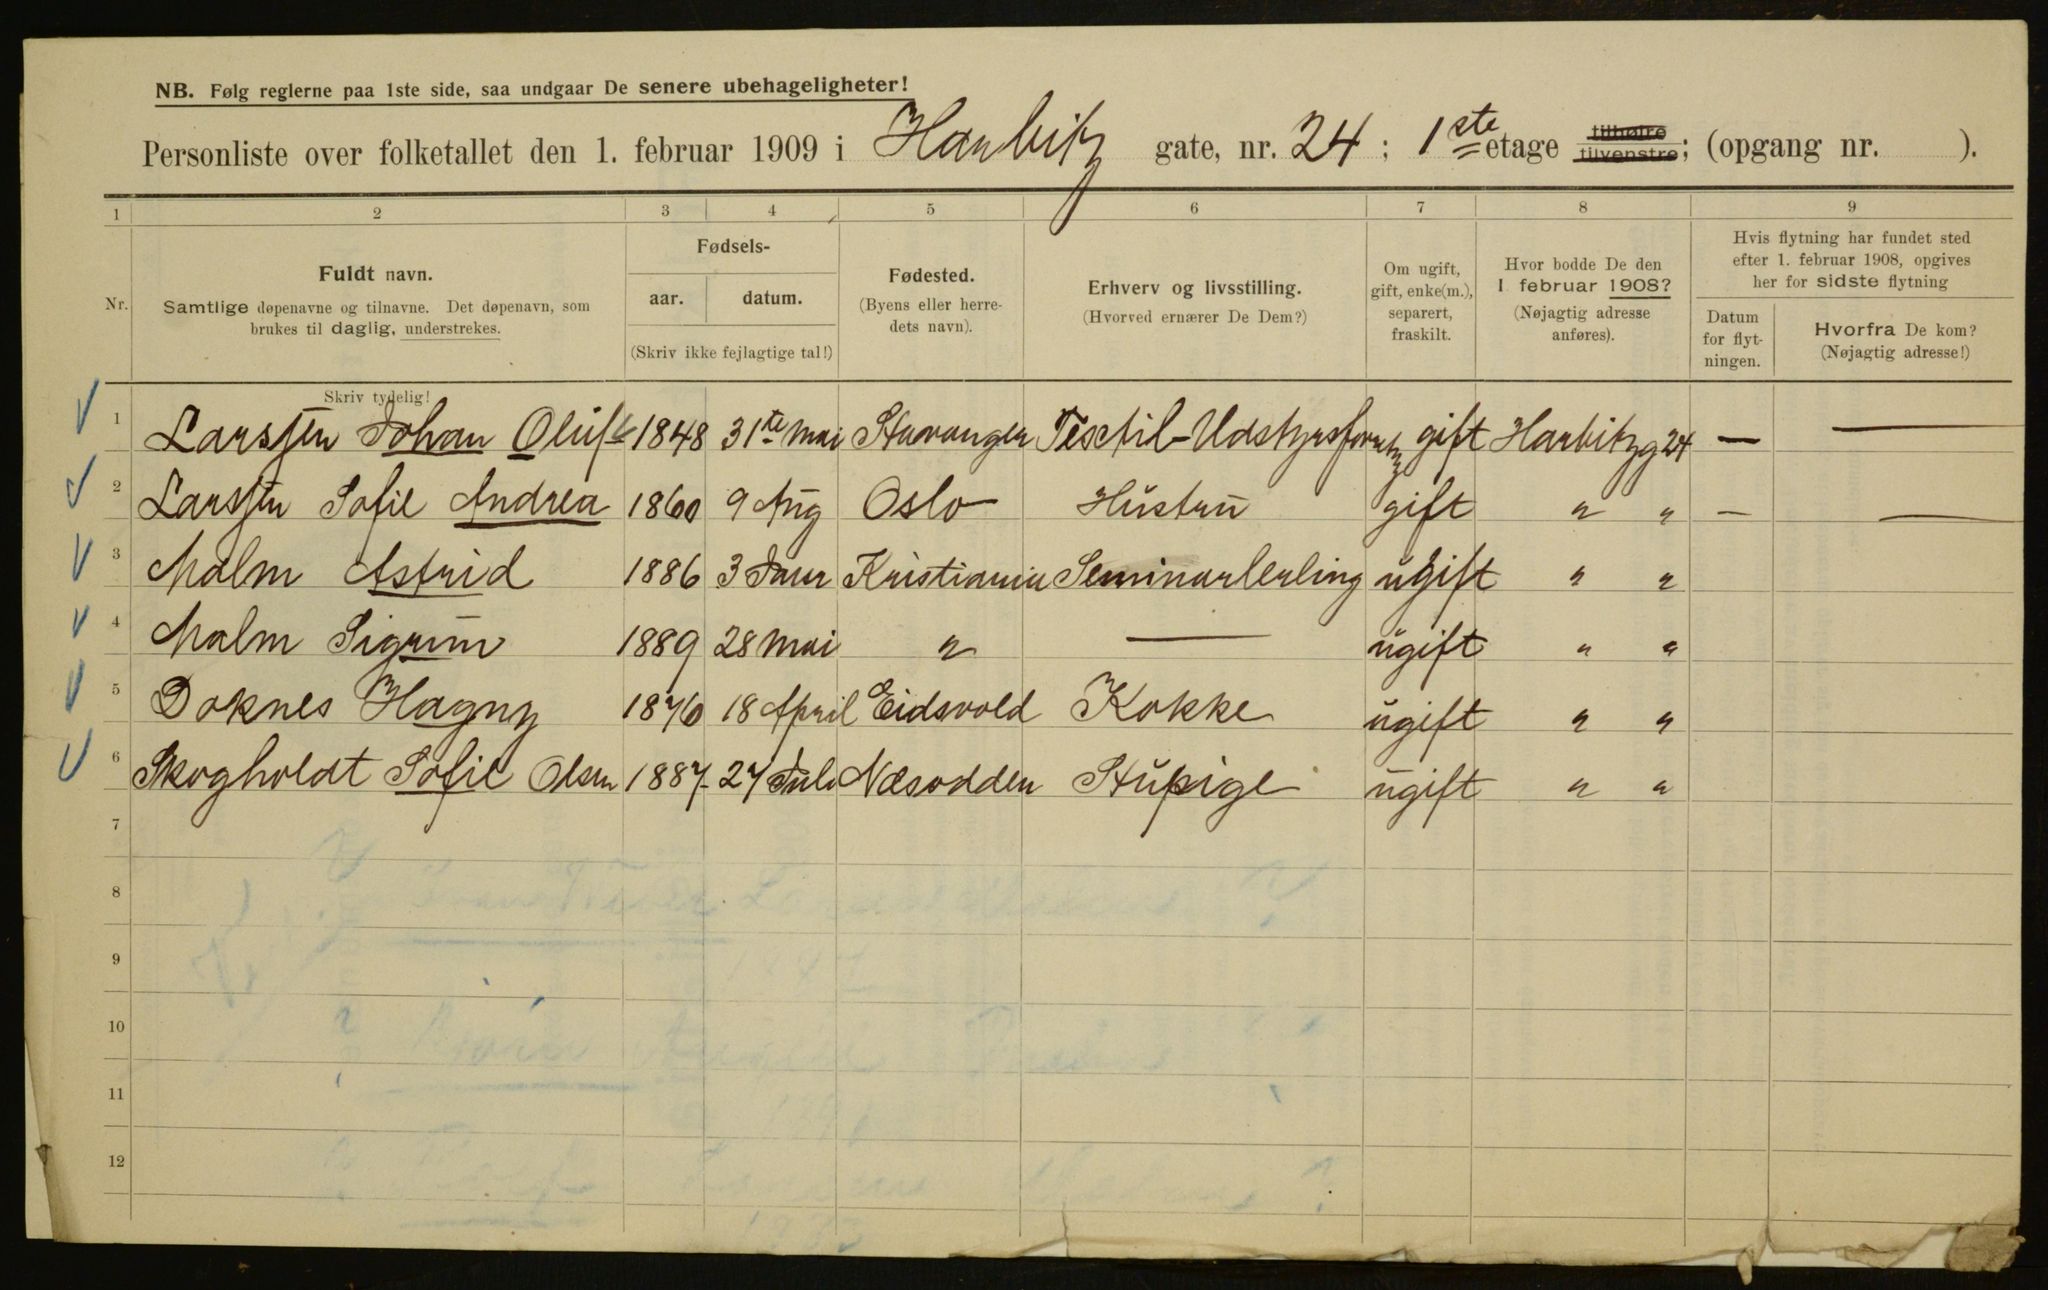 NB. Følg reglerne paa 1ste side, saa undgaar De senere ubehageligheter!
Personliste over folketallet den 1. februar 1909 i Harbitz gate, nr. 24 ; 1ste etage tilhøire tilvenstre; (opgang nr. ).
1 2 3 4 5 6 7 8 9
Nr.
Fuldt navn.
Samtlige døpenavne og tilnavne. Det døpenavn, som
brukes til daglig, understrekes.
Fødsels-
aar. datum.
(Skriv ikke fejlagtige tal!)
Fødested.
(Byens eller herre-
dets navn).
Erhverv og livsstilling.
(Hvorved ernærer De Dem?)
Om ugift,
gift, enke(m.),
separert,
fraskilt.
Hvor bodde De den
1. februar 1908?
(Nøjagtig adresse
anføres).
Hvis flytning har fundet sted
efter 1. februar 1908, opgives
her for sidste flytning
Datum
for flyt-
ningen.
Hvorfra De kom?
(Nøjagtig adresse!)
Skriv tydelig!
1 Larssen Johan Oluf 1848 31te mai Stavanger Textil-Udstyrsforretng gift Harbitzg 24 — —
2 Larssen Sofie Andrea 1860 9 Aug Oslo Hustru gift " " — —
3 Malm Astrid 1886 3 Janr Kristiania Seminarlerling ugift " "
4 Malm Sigrun 1889 28 mai " — ugift " "
5 Doknes Hagny 1876 18 April Eidsvold Kokke ugift " "
6 Skogholdt Sofie Olsen 1887 27 Juli Næsodden Stupige ugift " "
7
8
9
10
11
12